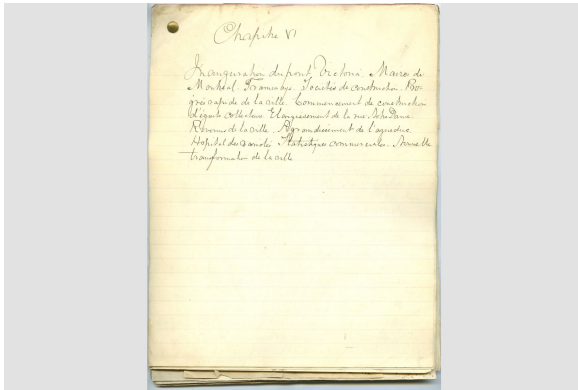 Chapitre VI
Inauguration du pont Victoria. Maires de
Montréal. Tramways. Sociétés de construction. Pro-
grès rapide de la ville. Commencement de construction
d'égouts collecteurs. Elargissement de la rue Notre Dame.
Revenus de la ville. Agrandissement de l'aqueduc.
Hôpital des variolés. Statistiques commerciales. Nouvelle
transformation de la ville